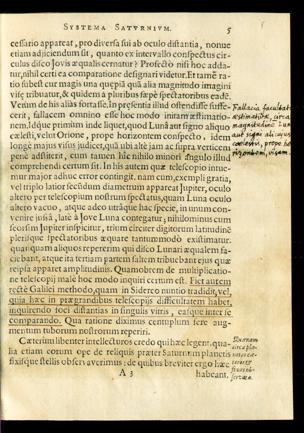 SYSTEMA SATVRNIVM. 5
cessario appareat, pro diversa sui ab oculo distantia, nonne
etiam adjiciendum sit, quanto ex intervallo conspectus cir-
culus disco Jovis æqualis cernatur? Profecto nisi hoc adda-
tur, nihil certi ea comparatione designari videtur. Et tamē ra-
tio subest cur magis una quàpiā quā alia magnitudo imagini
visæ tribuatur, & quidem à pluribus sæpè spectatoribus eadē.
Verùm de his aliàs fortasse. In præsentia illud ostendisse suffe-
cerit, fallacem omnino esse hoc modo initam æstimatio-
nem. Idque primùm inde liquet, quod Luna aut signo aliquo
cælesti, velut Orione, prope horizontem conspecto, idem
longè majus visus judicet, quā ubi altè jam ac supra verticem
penè adstiterit, cum tamen hīc nihilo minori angulo illud
comprehendi certum sit. In his autem quæ telescopio intue-
mur major adhuc error contingit. nam cum, exempli gratia,
vel triplo latior secūdum diametrum appareat Jupiter, oculo
altero per telescopium nostrum spectatus, quam Luna oculo
altero vacuo, atque adeo utràque hac specie, in unum con-
venire jussa, latè à Jove Luna contegatur; nihilominus cum
seorsim Jupiter inspicitur, trium circiter digitorum latitudinē
plerisque spectatoribus æquare tantummodo existimatur.
quanquam aliquos repererim qui disco Lunari æqualem fa-
ciebant, atque ita tertiam partem saltem tribuebant ejus quæ
reipsa apparet amplitudinis. Quamobrem de multiplicatio-
ne telescopij malè hoc modo inquiri certum est. Fiet autem
rectè Galilei methodo, quam in Sidereo nuntio tradidit, vel,
quia hæc in prægrandibus telescopijs difficultatem habet,
inquirendo foci distantias in singulis vitris, easque inter se
comparando. Qua ratione diximus centuplum fere aug-
mentum tuborum nostrorum reperiri.
Cæterùm libenter intellecturos credo qui hæc legent, qua-
lia etiam eorum ope de reliquis præter Saturnum planetis
fixisque stellis observaverimus: de quibus breviter ergo hæc
A 3 habeant.
Fallacia
æstimatiōis, circa
magnitudinē
aut signi alicujus
cœlestis, prope ho-
rizontem, visam.